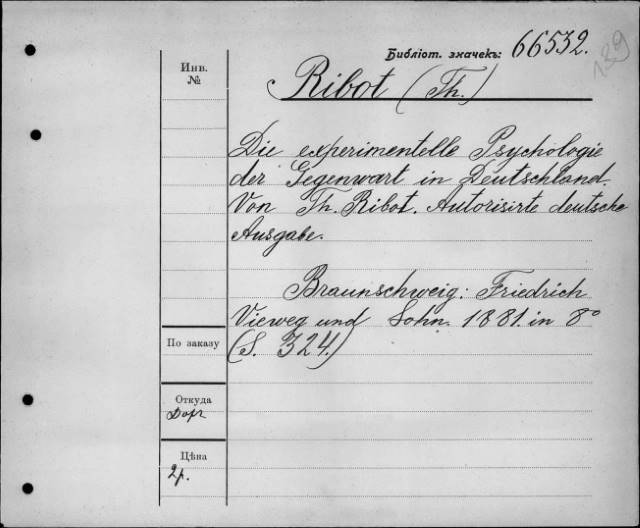 Библіот. значекъ: 66532.
189
Инв. №
Ribot (Th.)
Die experimentelle Psychologie
der Gegenwart in Deutschland.
Von Th. Ribot. Autorisirte deutsche
Ausgabe.
Braunschweig: Friedrich
Vieweg und Sohn. 1881. in 8°
(S. 324.)
По заказу
Откуда
Дорп
Цѣна
2р.